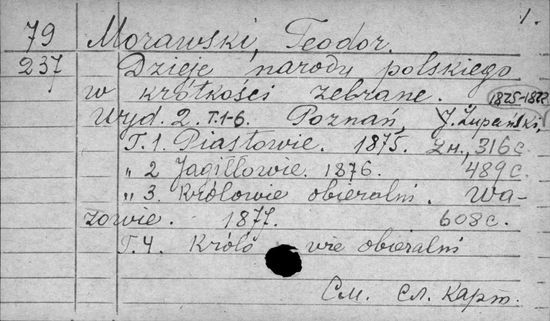 1.
79 Morawski, Teodor.
237 Dzieje narodu polskiego
w krótkości zebrane. 1875-1877
Wyd. 2. T.1-6. Poznań, J. Żupański,
T. 1. Piastowie. 1875. 2н., 316с.
" 2 Jagiłłowie. 1876. 489с.
" 3. Królowie obieralni. Wa-
zowie. 1877. 608с.
T. 4. Królowie obieralni
См. сл. карт.